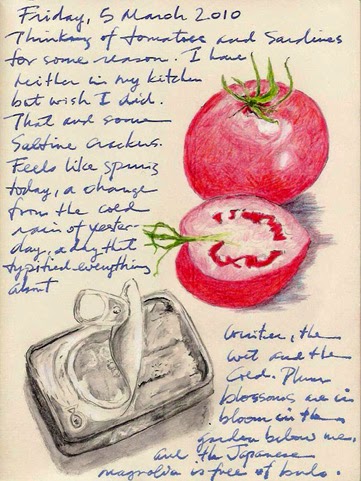 Friday, 5 March 2010
Thinking of tomatoes and Sardines
for some reason. I have
neither in my kitchen
but wish I did.
That and some
Saltine Crackers.
Feels like spring
today, a change
from the cold
rain of yester-
day, a day that
typified everything
about
winter, the
wet and the
cold. Plum
blossoms are in
bloom in the
garden below me,
and the Japanese
magnolia is free of buds.